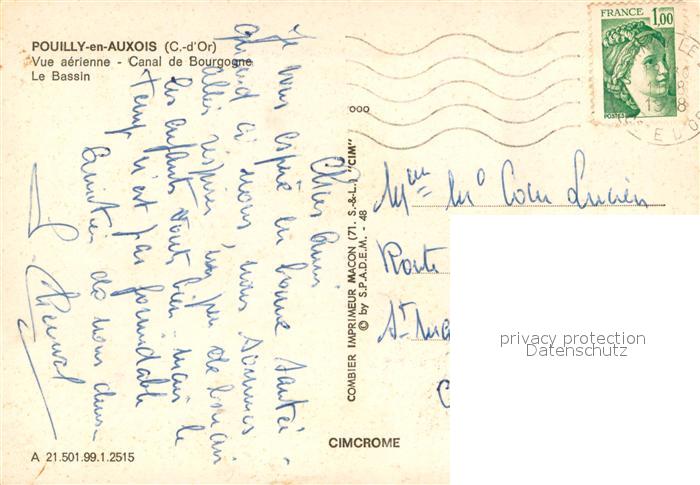 POUILLY-en-AUXOIS (C.-d'Or)
Vue aérienne - Canal de Bourgogne
Le Bassin
Chers Amis
Je vous espère en bonne santé.
Quand à nous, nous sommes
allés respirer un peu de
les enfants vont bien - mais le
temps n'est pas formidable
Amitiés de nous deux
A 21.501.99.1.2515
COMBIER IMPRIMEUR MACON (71. S.-&-L.) "CIM"
© by S.P.A.D.E.M. - 48
CIMCROME
FRANCE 1,00
POSTES
Lucien
Route
St
privacy protection
Datenschutz